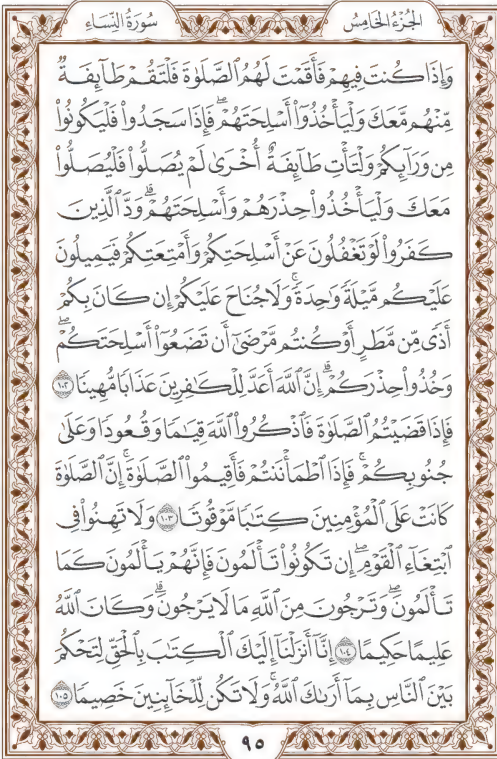 الجُزْءُ الخَامِسُ سُورَةُ النِّسَاءِ
وَإِذَا كُنتَ فِيهِمْ فَأَقَمْتَ لَهُمُ ٱلصَّلَوٰةَ فَلْتَقُمْ طَآئِفَةٌ
مِّنْهُم مَّعَكَ وَلْيَأْخُذُوٓاْ أَسْلِحَتَهُمْۖ فَإِذَا سَجَدُواْ فَلْيَكُونُواْ
مِن وَرَآئِكُمْ وَلْتَأْتِ طَآئِفَةٌ أُخْرَىٰ لَمْ يُصَلُّواْ فَلْيُصَلُّواْ
مَعَكَ وَلْيَأْخُذُواْ حِذْرَهُمْ وَأَسْلِحَتَهُمْۗ وَدَّ ٱلَّذِينَ
كَفَرُواْ لَوْ تَغْفُلُونَ عَنْ أَسْلِحَتِكُمْ وَأَمْتِعَتِكُمْ فَيَمِيلُونَ
عَلَيْكُم مَّيْلَةً وَٰحِدَةًۚ وَلَا جُنَاحَ عَلَيْكُمْ إِن كَانَ بِكُمْ
أَذًى مِّن مَّطَرٍ أَوْ كُنتُم مَّرْضَىٰٓ أَن تَضَعُوٓاْ أَسْلِحَتَكُمْۖ
وَخُذُواْ حِذْرَكُمْۗ إِنَّ ٱللَّهَ أَعَدَّ لِلْكَٰفِرِينَ عَذَابًا مُّهِينًا ١٠٢
فَإِذَا قَضَيْتُمُ ٱلصَّلَوٰةَ فَٱذْكُرُواْ ٱللَّهَ قِيَٰمًا وَقُعُودًا وَعَلَىٰ
جُنُوبِكُمْۚ فَإِذَا ٱطْمَأْنَنتُمْ فَأَقِيمُواْ ٱلصَّلَوٰةَۚ إِنَّ ٱلصَّلَوٰةَ
كَانَتْ عَلَى ٱلْمُؤْمِنِينَ كِتَٰبًا مَّوْقُوتًا ١٠٣ وَلَا تَهِنُواْ فِي
ٱبْتِغَآءِ ٱلْقَوْمِۖ إِن تَكُونُواْ تَأْلَمُونَ فَإِنَّهُمْ يَأْلَمُونَ كَمَا
تَأْلَمُونَۖ وَتَرْجُونَ مِنَ ٱللَّهِ مَا لَا يَرْجُونَۗ وَكَانَ ٱللَّهُ
عَلِيمًا حَكِيمًا ١٠٤ إِنَّآ أَنزَلْنَآ إِلَيْكَ ٱلْكِتَٰبَ بِٱلْحَقِّ لِتَحْكُمَ
بَيْنَ ٱلنَّاسِ بِمَآ أَرَىٰكَ ٱللَّهُۚ وَلَا تَكُن لِّلْخَآئِنِينَ خَصِيمًا ١٠٥
٩٥